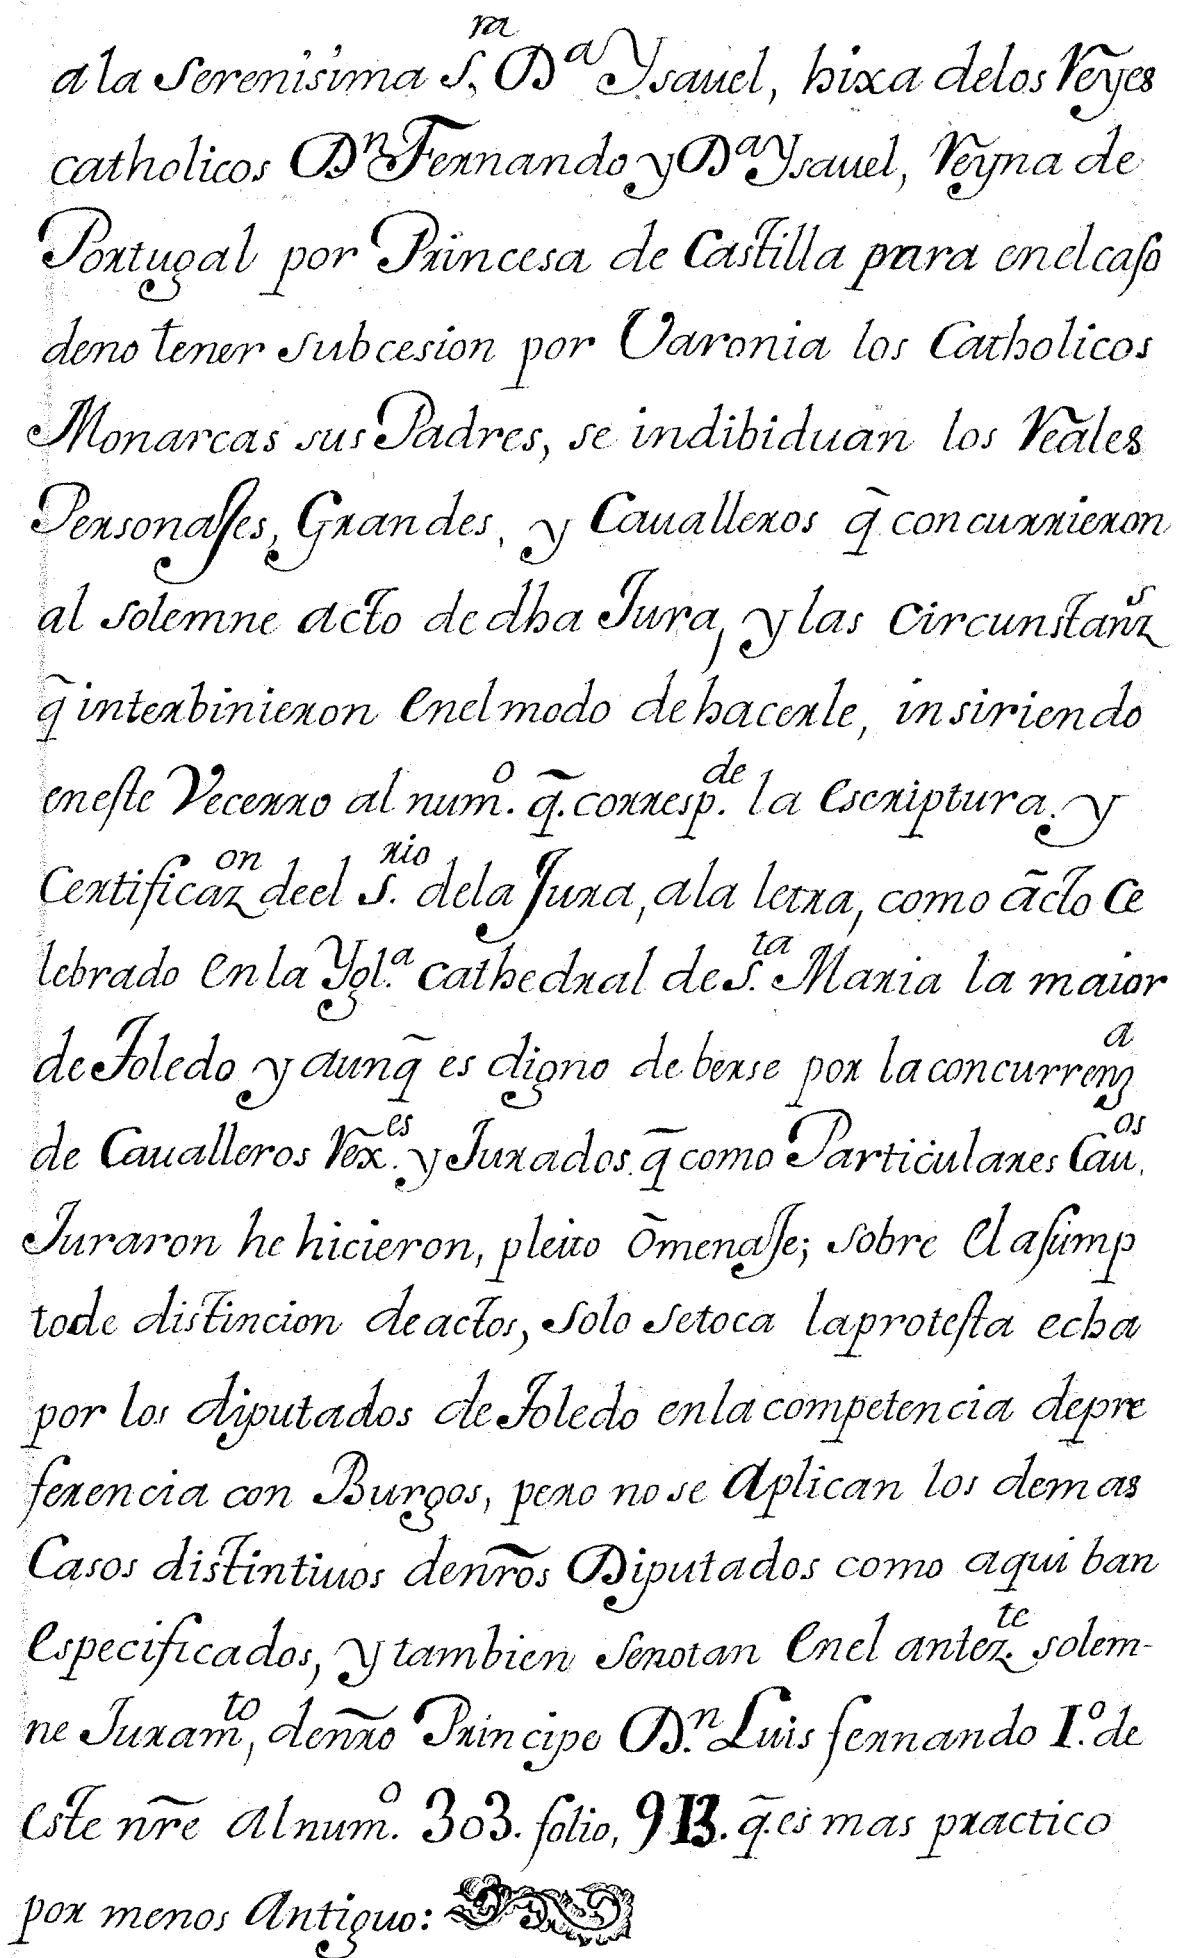 a la Serenisima S.ra D.a Ysauel, hixa delos Reyes
catholicos D.n Fernando y D.a Ysauel, Reyna de
Portugal por Princesa de Castilla para en el caso
de no tener subcesion por Uaronia los Catholicos
Monarcas sus Padres, se indibiduan los Reales
Personajes, Grandes, y Caualleros q̃ concurrieron
al solemne acto de dha Jura, y las Circunstanz.s
q̃ interbinieron en el modo de hacerle, insiriendo
en este Vecerro al num.o q̃. corresp.de la escriptura. y
Certificaz.on de el S.rio de la Jura, a la letra, como ãcto Ce
lebrado en la Ygl.a cathedral de S.ta Maria la maior
de Toledo y aunq̃ es digno de berse por la concurrenz.a
de Caualleros Rex.es y Jurados q̃ como Particulares Cau.os
Juraron he hicieron, pleito õmenaje; sobre el asump
to de distincion de actos, solo se toca la protesta echa
por los diputados de Toledo en la competencia de pre
ferencia con Burgos, pero no se aplican los demas
Casos distintiuos de nr̃os Diputados como aqui ban
especificados, y tambien se notan en el antez.te solem-
ne Juram.to, de nr̃o Principe D.n Luis fernando I.o de
este nr̃e al num.o 303. folio, 913. q̃. es mas practico
por menos Antiguo: